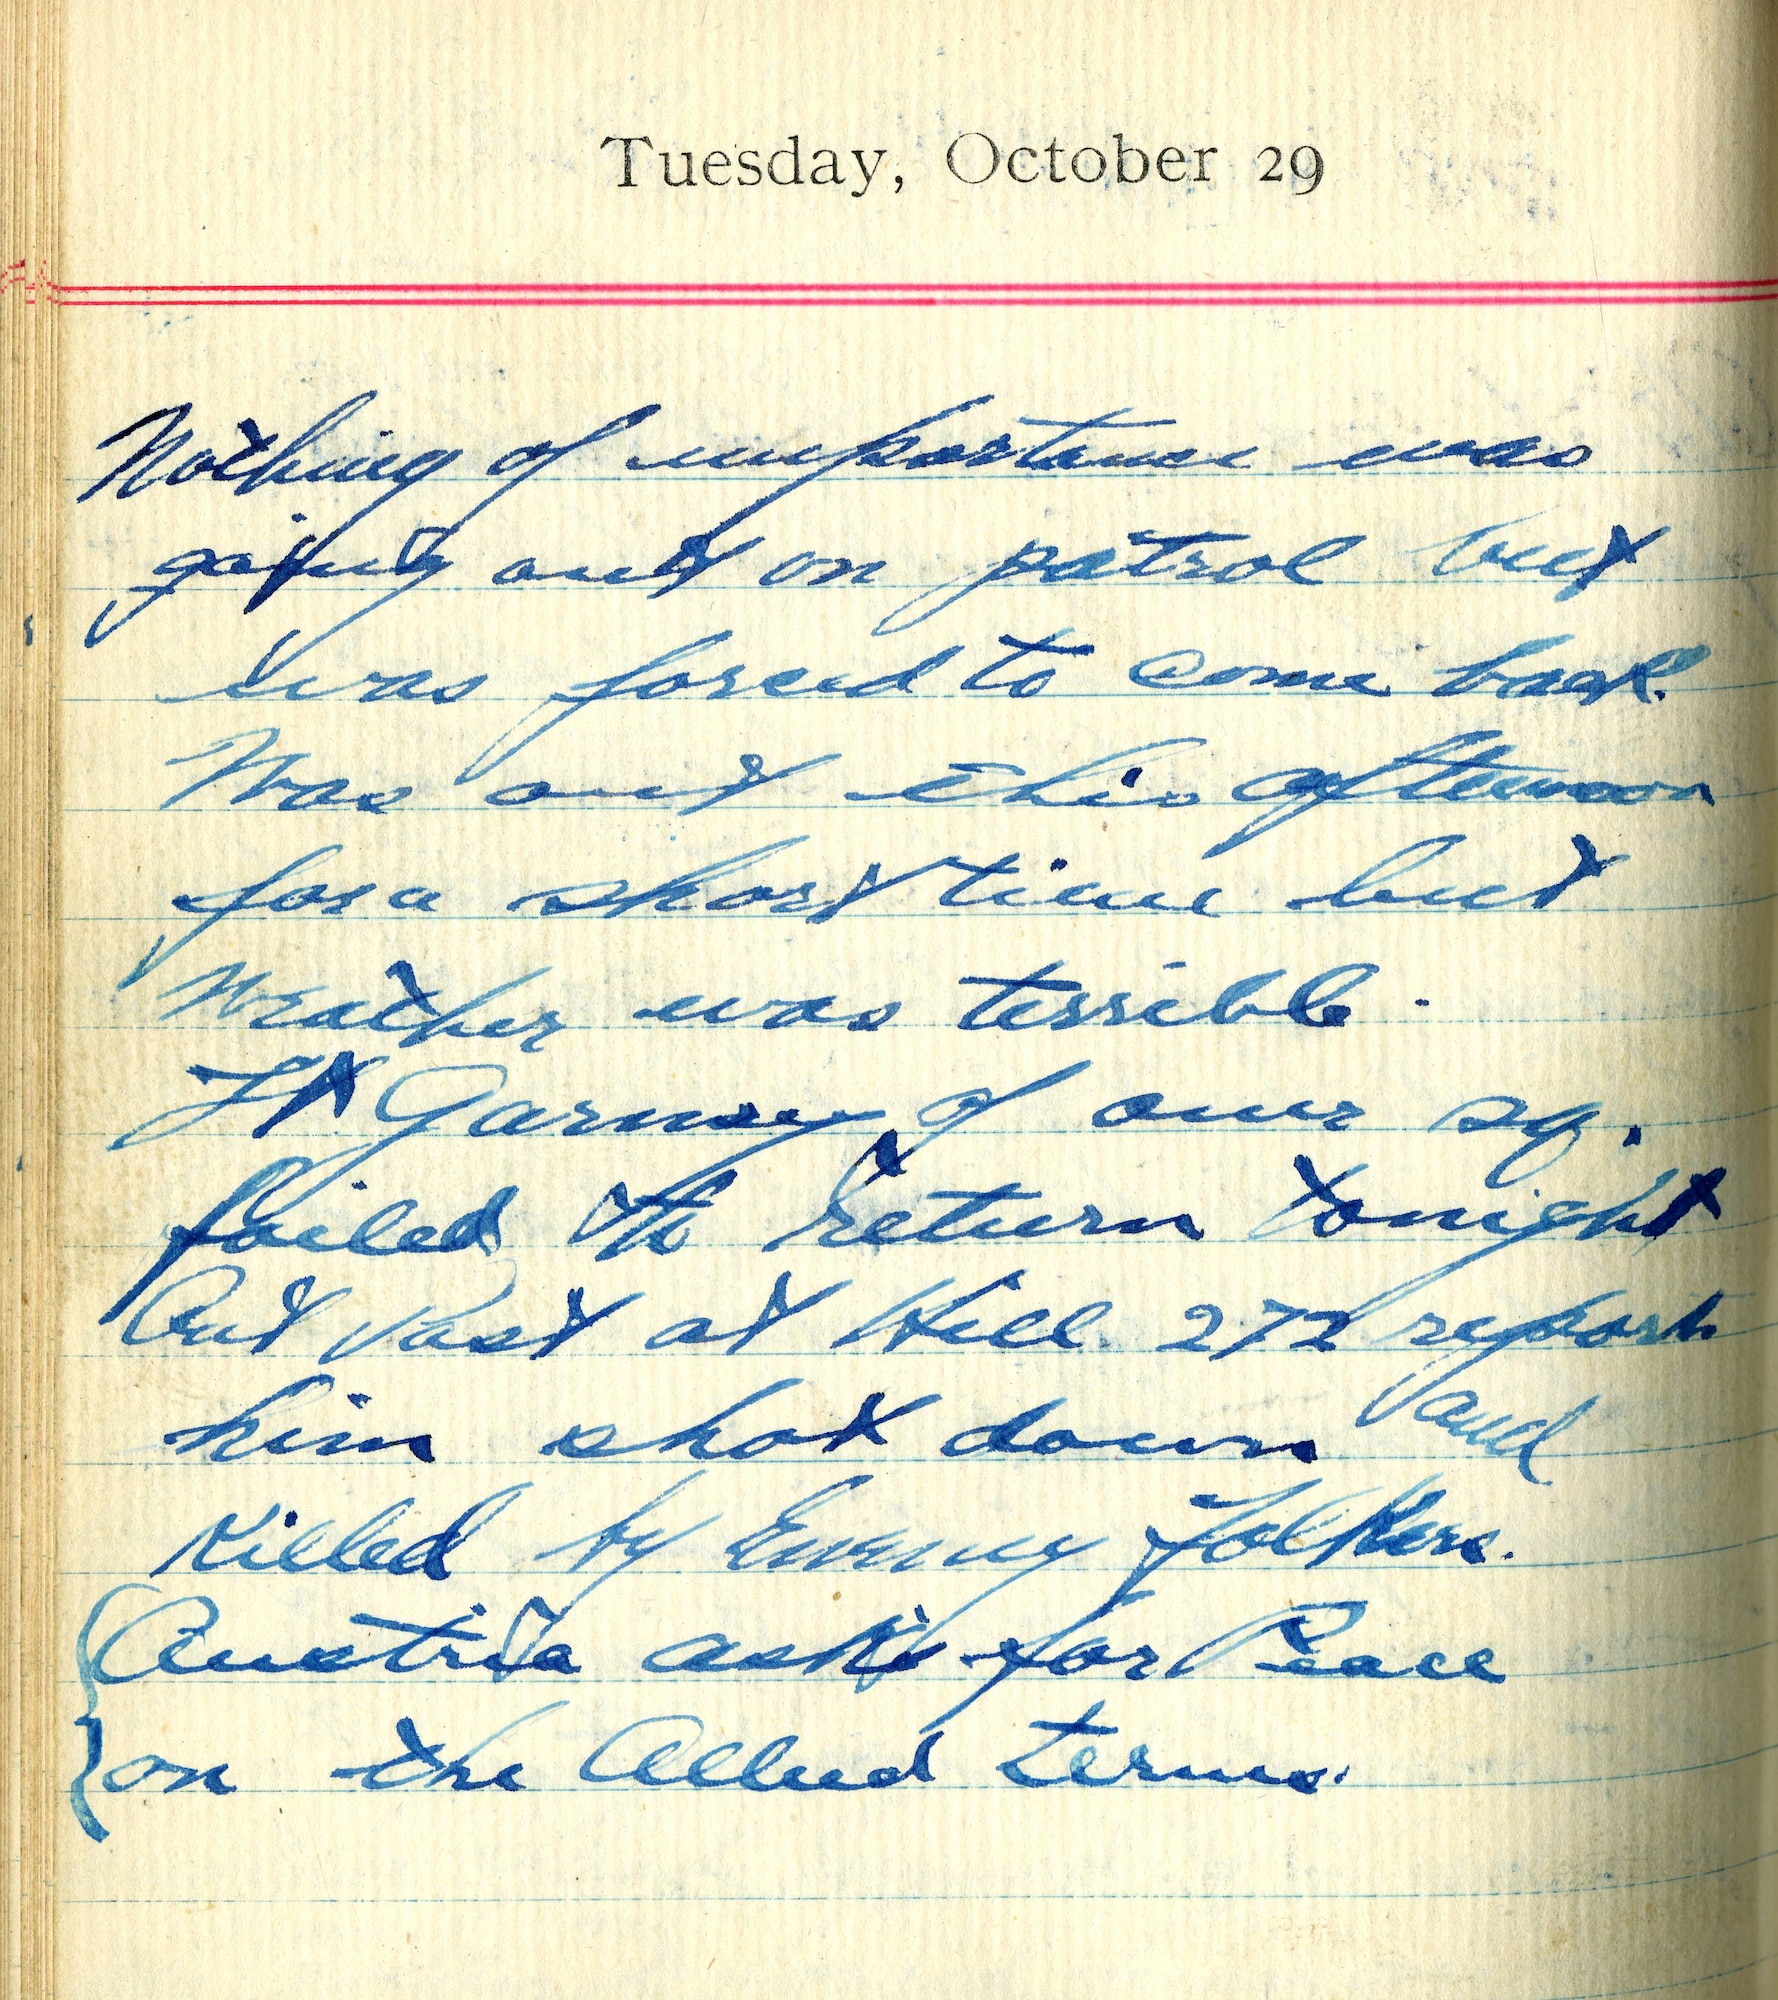 Tuesday, October 29
Nothing of importance was
going out on patrol but
was forced to come back.
Was out this afternoon
for a short time but
Weather was terrible.
Lt Garnsey of our sq.
failed to return tonight
Out Post at Hill 272 reports
him shot down and
Killed by Enemy Folkers.
Austria asks for Peace
on the Allied terms.